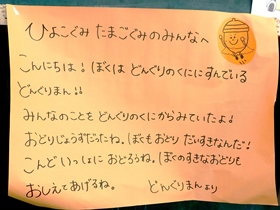 ひよこぐみ たまごぐみのみんなへ
こんにちは! ぼくは どんぐりのくににすんでいる
どんぐりまん!!
みんなのことを どんぐりのくにからみていたよ!
おどりじょうずだったね。ぼくもおどり だいすきなんだ!
こんど いっしょに おどろうね。ぼくのすきなおどりも
おしえてあげるね。 どんぐりまんより